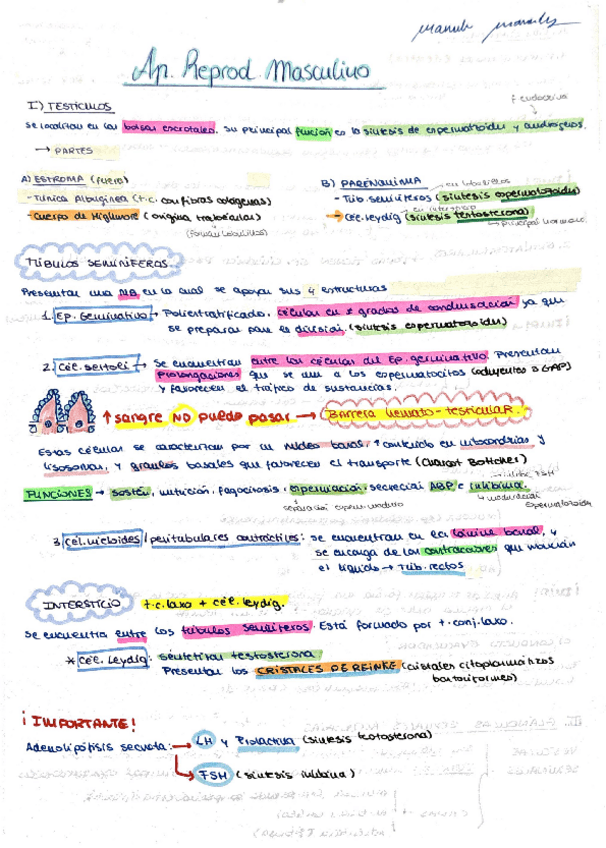 Manuela
Ap. Reprod. Masculino
I) TESTÍCULOS
f endocrina
Se localizan en las bolsas escrotales. Su principal función es la síntesis de espermatozoides y andrógenos.
→ PARTES
A) ESTROMA (fuera)
- Túnica Albugínea (t.c. con fibras colágenas)
- Cuerpo de Highmore (origina trabéculas)
(forman lobulillos)
B) PARÉNQUIMA
en lobulillos
- Túb. seminíferos (síntesis espermatozoides)
en intersticio
- Cél. Leydig (síntesis testosterona)
→ principal hormona
TÚBULOS SEMINÍFEROS
Presentan una MB en la cual se apoyan sus 4 estructuras
1. Ep. Germinativo → Poliestratificado, células en ≠ grados de condensación ya que
se preparan para la división. (síntesis espermatozoides)
2. Cél. Sertoli → Se encuentran entre las células del Ep. germinativo. Presentan
prolongaciones que se unen a los espermatocitos (adherentes o GAP)
y favorecen el tráfico de sustancias.
↑ sangre NO puede pasar → Barrera hemato-testicular.
Estas células se caracterizan por su núcleo basal, ↑ contenido en mitocondrias y
lisosomas, y gránulos basales que favorecen el transporte (Charcot Böttcher)
inhibe FSH
FUNCIONES → sostén, nutrición, fagocitosis, espermiación, secreción ABP e inhibina.
separación esperm. maduro
↳ maduración espermatozoide
3. Cél. mieloides / peritubulares contráctiles: se encuentran en la lámina basal, y
se encarga de las contracciones que movilizan
el líquido → túb. rectos
INTERSTICIO t.c. laxo + cél. Leydig.
Se encuentra entre los túbulos seminíferos. Está formado por t. conj. laxo.
* Cél. Leydig: sintetizan testosterona
Presentan los CRISTALES DE REINKE (cristales citoplasmáticos
bastoniformes)
¡IMPORTANTE!
Adenohipófisis secreta: → LH y Prolactina (síntesis testosterona)
→ FSH (síntesis inhibina)